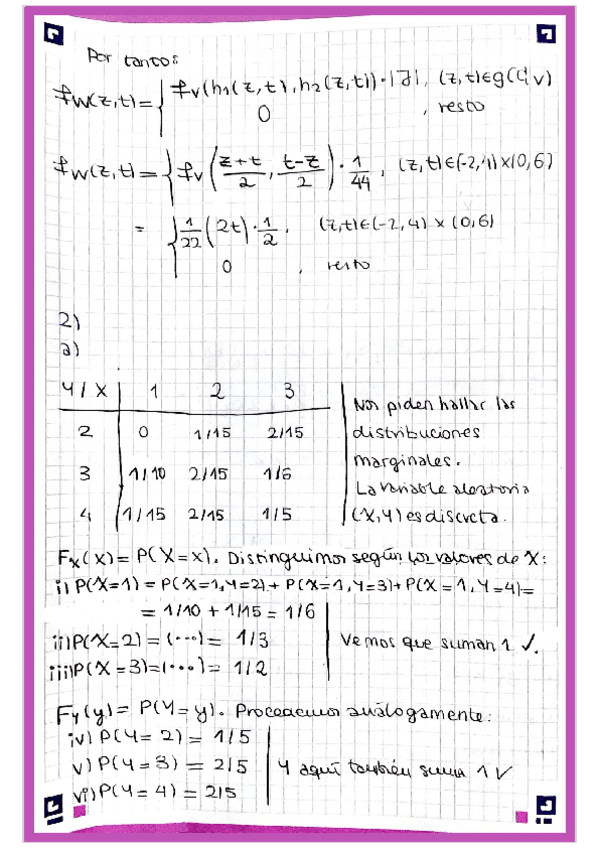 Por tanto:
fw(z,t) = { fv(h1(z,t), h2(z,t))·|J|, (z,t)∈g(Cv)
0 , resto
fw(z,t) = { fv((z+t)/2, (t-z)/2)·1/44, (z,t)∈(-2,4)x(0,6)
= { 1/22 (2t)·1/2, (z,t)∈(-2,4) x (0,6)
0 , resto
2)
a)
Y/X | 1 2 3
2 0 1/15 2/15
3 1/10 2/15 1/6
4 1/15 2/15 1/5
Nos piden hallar las
distribuciones
marginales.
La variable aleatoria
(X,Y) es discreta.
Fx(x) = P(X=x). Distinguimos según los valores de X:
i) P(X=1) = P(X=1,Y=2) + P(X=1,Y=3) + P(X=1,Y=4) =
= 1/10 + 1/15 = 1/6
ii) P(X=2) = (...) = 1/3
iii) P(X=3) = (...) = 1/2
Vemos que suman 1 ✓.
Fy(y) = P(Y=y). Procedemos análogamente:
iv) P(Y=2) = 1/5
v) P(Y=3) = 2/5
vi) P(Y=4) = 2/5
Y aquí también suma 1 ✓